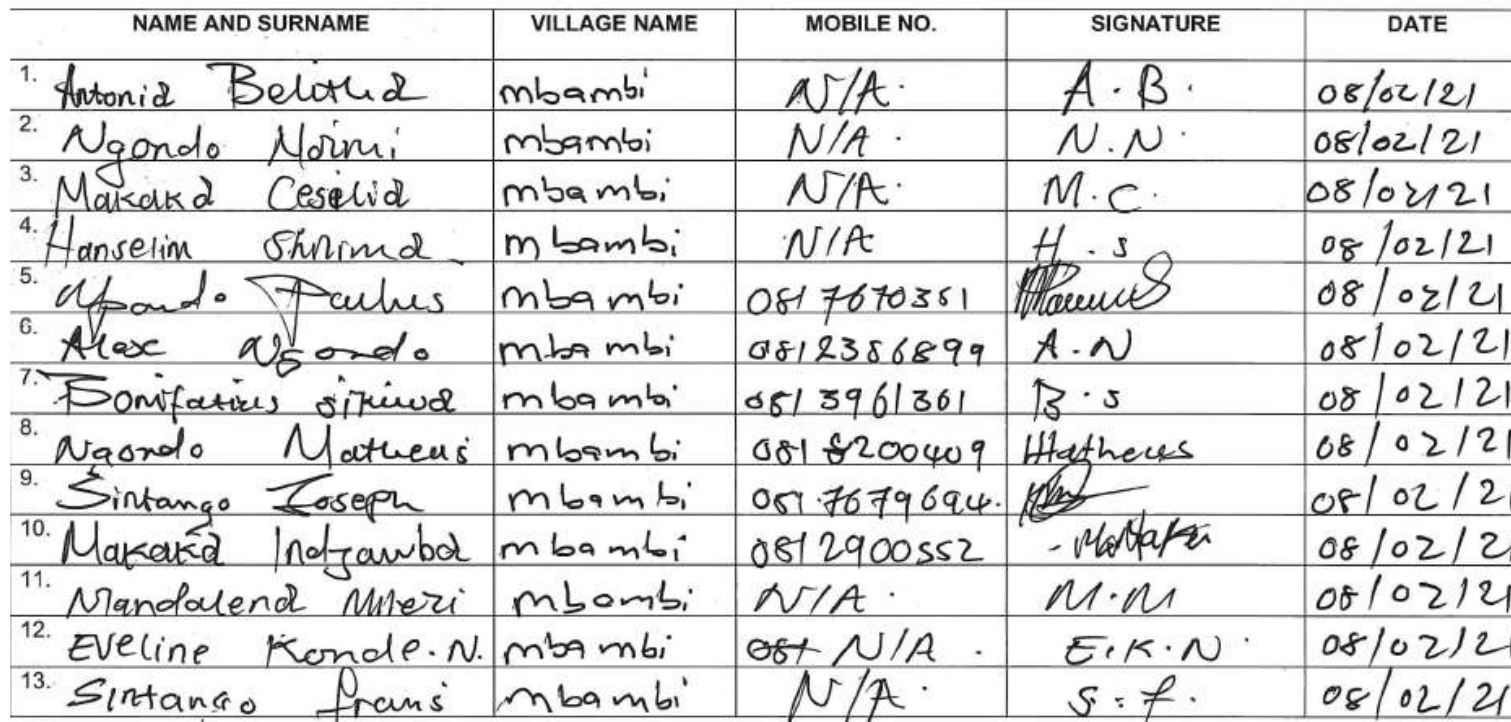 NAME AND SURNAME VILLAGE NAME MOBILE NO. SIGNATURE DATE
1. Antonia mbambi N/A. A.B. 08/02/21
2. Ngondo mbambi N/A. N.N. 08/02/21
3. Makaka Ceselia mbambi N/A. M.C. 08/02/21
4. Hanselim mbambi N/A H.s 08/02/21
5. Paulus mbambi 08/02/21
6. Alex Ngondo mbambi 0812386899 A.N 08/02/21
7. Bonifatius mbambi 0813961361 B.s 08/02/21
8. Ngondo Matheus mbambi Matheus 08/02/21
9. Sintango Joseph mbambi 0817679694. 08/02/21
10. Makaka mbambi 0812900552 08/02/21
11. Mandalena mbambi N/A. M.M 08/02/21
12. Eveline Konde.N. mbambi N/A. E.K.N. 08/02/21
13. Sintango frans mbambi N/A. s.f. 08/02/21